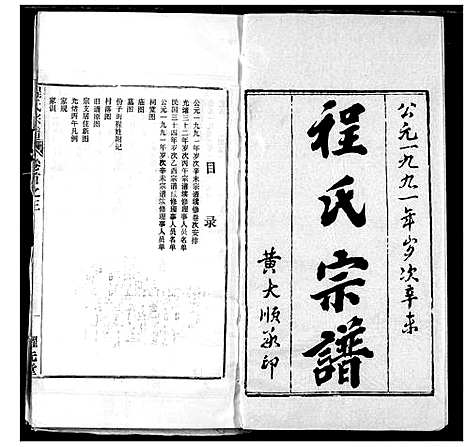 公元一九九一年岁次辛未
程氏宗譜
黄大顺承印
目录
公元一九九一年岁次辛未宗谱续修卷次安排
光绪三十二年岁次丙午宗谱续修理事人员名单
民国三十四年岁次乙酉宗谱续修理事人员名单
公元一九九一年岁次辛未宗谱续修理事人员名单
祠堂图
庙图
墓图
份子街程姓附记
村落图
旧谱原图
宗支居住新图
光绪丙午凡例
家规
家训
程氏宗譜
卷首之三